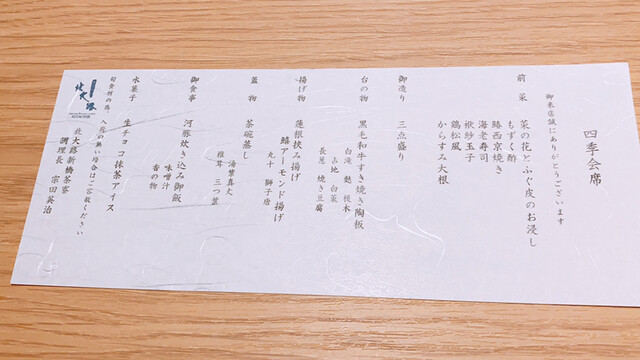 四季会席
御来店誠にありがとうございます
前菜 菜の花とふぐ皮のお浸し
もずく酢
鰆西京焼き
海老寿司
袱紗玉子
鶏松風
からすみ大根
御造り 三点盛り
台の物 黒毛和牛すき焼き陶板
白滝 麩 榎木
占地 白菜
長葱 焼き豆腐
揚げ物 蓮根挟み揚げ
鱚アーモンド揚げ
丸十 獅子唐
蓋物 茶碗蒸し
湯葉真丈
椎茸 三つ葉
御食事 河豚炊き込み御飯
味噌汁
香の物
水菓子 生チョコ抹茶アイス
旬食材の為、入荷の無い場合はご容赦ください
北大路新橋茶寮
調理長 宗田英治
北大路